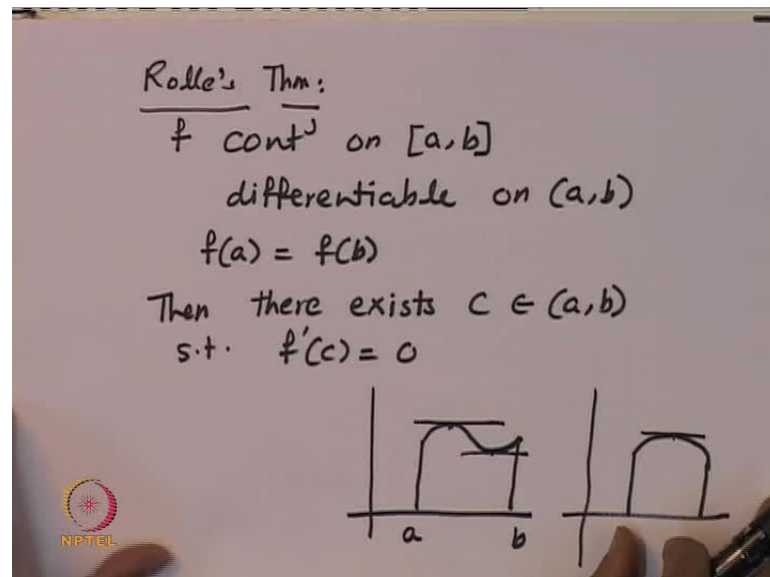 Rolle's Thm:
f cont^s on [a,b]
differentiable on (a,b)
f(a) = f(b)
Then there exists c ∈ (a,b)
s.t. f'(c) = 0
a b
NPTEL